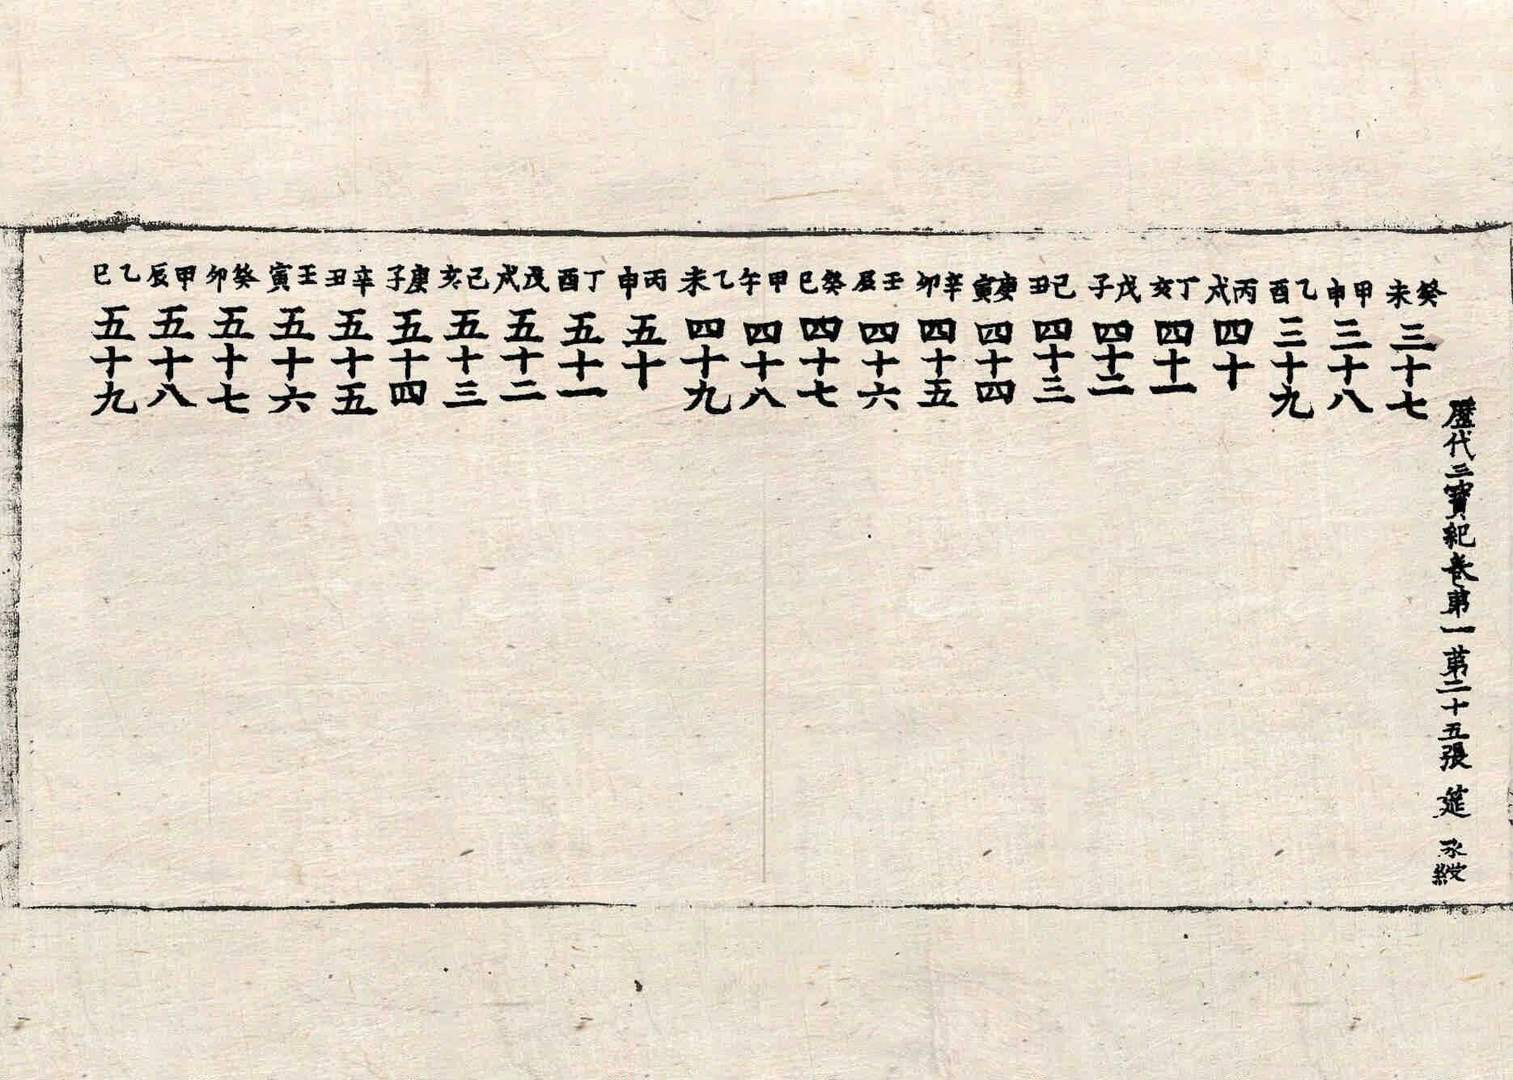 歷代三寶紀卷第一 第二十五張 筵 承綬
癸未 三十七
甲申 三十八
乙酉 三十九
丙戌 四十
丁亥 四十一
戊子 四十二
己丑 四十三
庚寅 四十四
辛卯 四十五
壬辰 四十六
癸巳 四十七
甲午 四十八
乙未 四十九
丙申 五十
丁酉 五十一
茂戌 五十二
己亥 五十三
庚子 五十四
辛丑 五十五
壬寅 五十六
癸卯 五十七
甲辰 五十八
乙巳 五十九